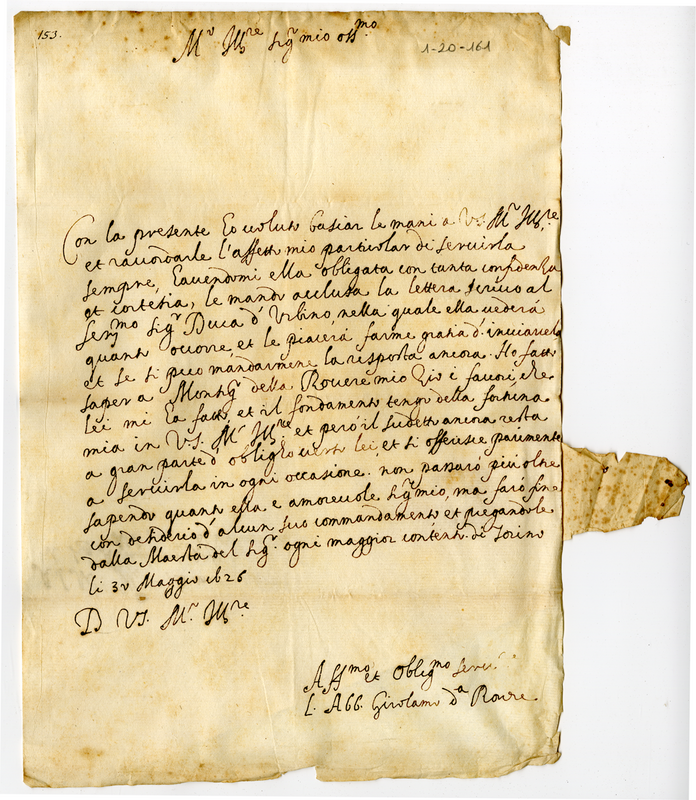 153.
M.r Ill.re Sig.r mio oss.mo
1-20-161
Con la presente ho voluto basiar le mani a V.S. M.r Ill.re
et racordarle l'affett mio particolar di servirla
sempre, havendomi ella obligata con tanta confidenza
et cortesia, le mando acclusa la lettera scrivo al
Ser.mo Sig.r Duca d'Urbino nella quale ella vederà
quanto ocorre, et le piacerà farme gratia d'inviarcela
et se si può mandarmene la risposta ancora. Ho fatto
saper a Monsig.r della Rovere mio Zio i favori, che
lei mi ha fatto, et il fondamento tengo della fortuna
mia in V.S. M.r Ill.re et però il sudetto ancora resta
a gran parte d'obligho verso lei et si offerisce parimente
a servirla in ogni occasione. non passarò più oltre
sapendo quanto ella e amorevole Sig.r mio, ma farò fine
con desiderio d'alcun suo commandamento et pregandole
dalla Maestà del Sig.r ogni maggior contento. di Torino
li 30 Maggio 1626
D V.S. M.r Ill.re
Aff.mo et Oblig.mo Serv.
L'Abb. Girolamo d.a Rovere